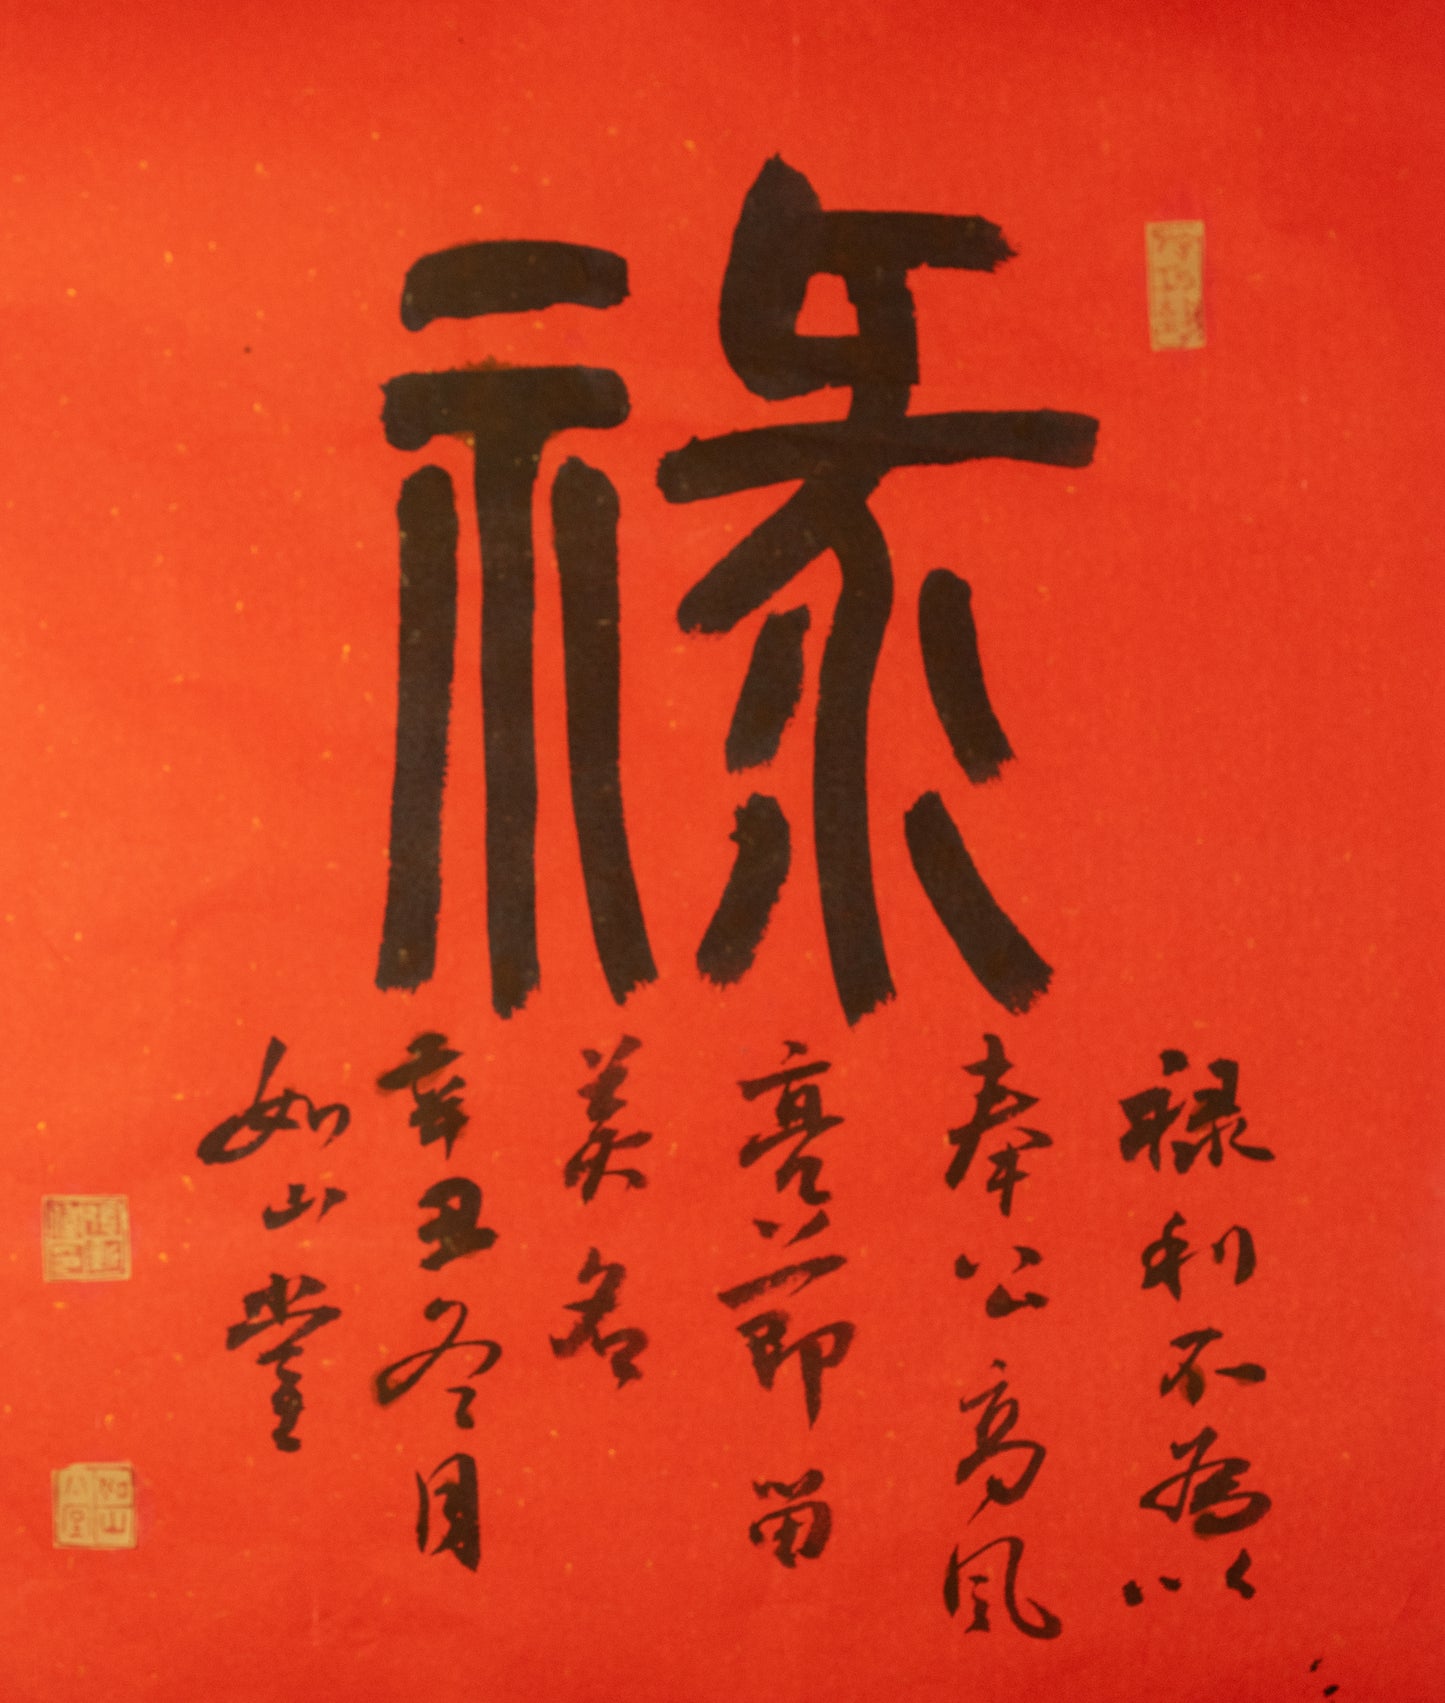 禄
禄利不為以
奉公高風
亮節留
美名
辛丑冬月
如山堂
如山